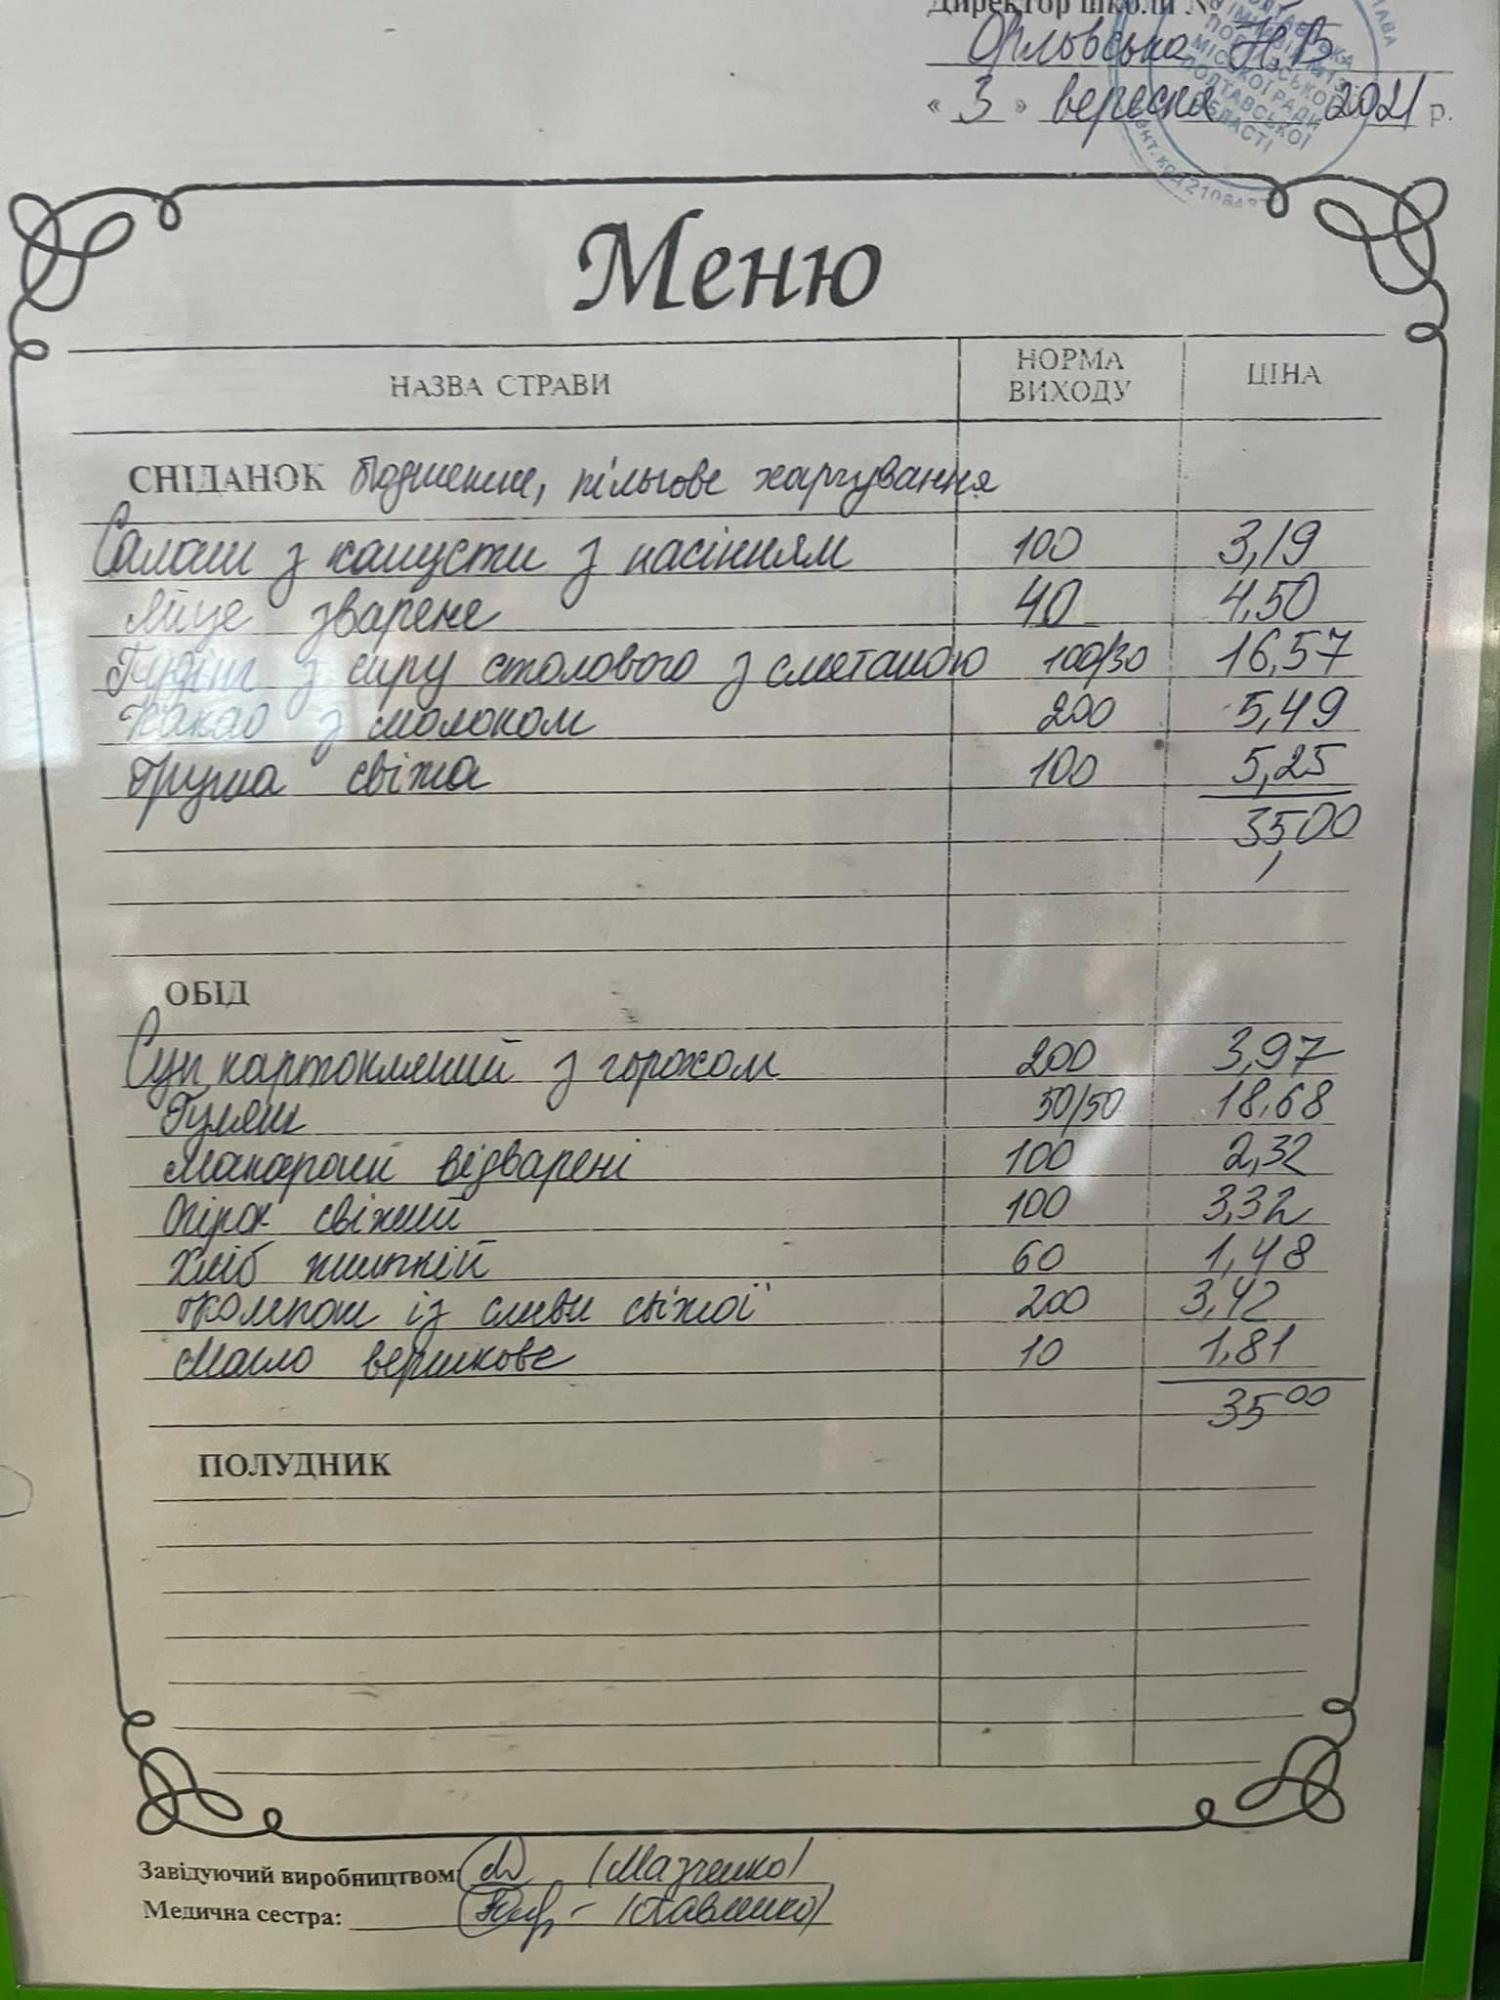 Директор школи №
Орловська Н.В
« 3 » вересня 2021 р.
Меню
НАЗВА СТРАВИ
НОРМА ВИХОДУ
ЦІНА
СНІДАНОК бюджетне, пільгове харчування
Салат з капусти з насінням 100 3,19
Яйце зварене 40 4,50
Пудінг з сиру столового з сметаною 100/30 16,57
Какао з молоком 200 5,49
Груша свіжа 100 5,25
35,00
ОБІД
Суп картопляний з горохом 200 3,97
Гуляш 50/50 18,68
Макарони відварені 100 2,32
Огірок свіжий 100 3,32
Хліб житній 60 1,48
Компот із сливи свіжої 200 3,42
Масло вершкове 10 1,81
35 00
ПОЛУДНИК
Завідуючий виробництвом:
Медична сестра: